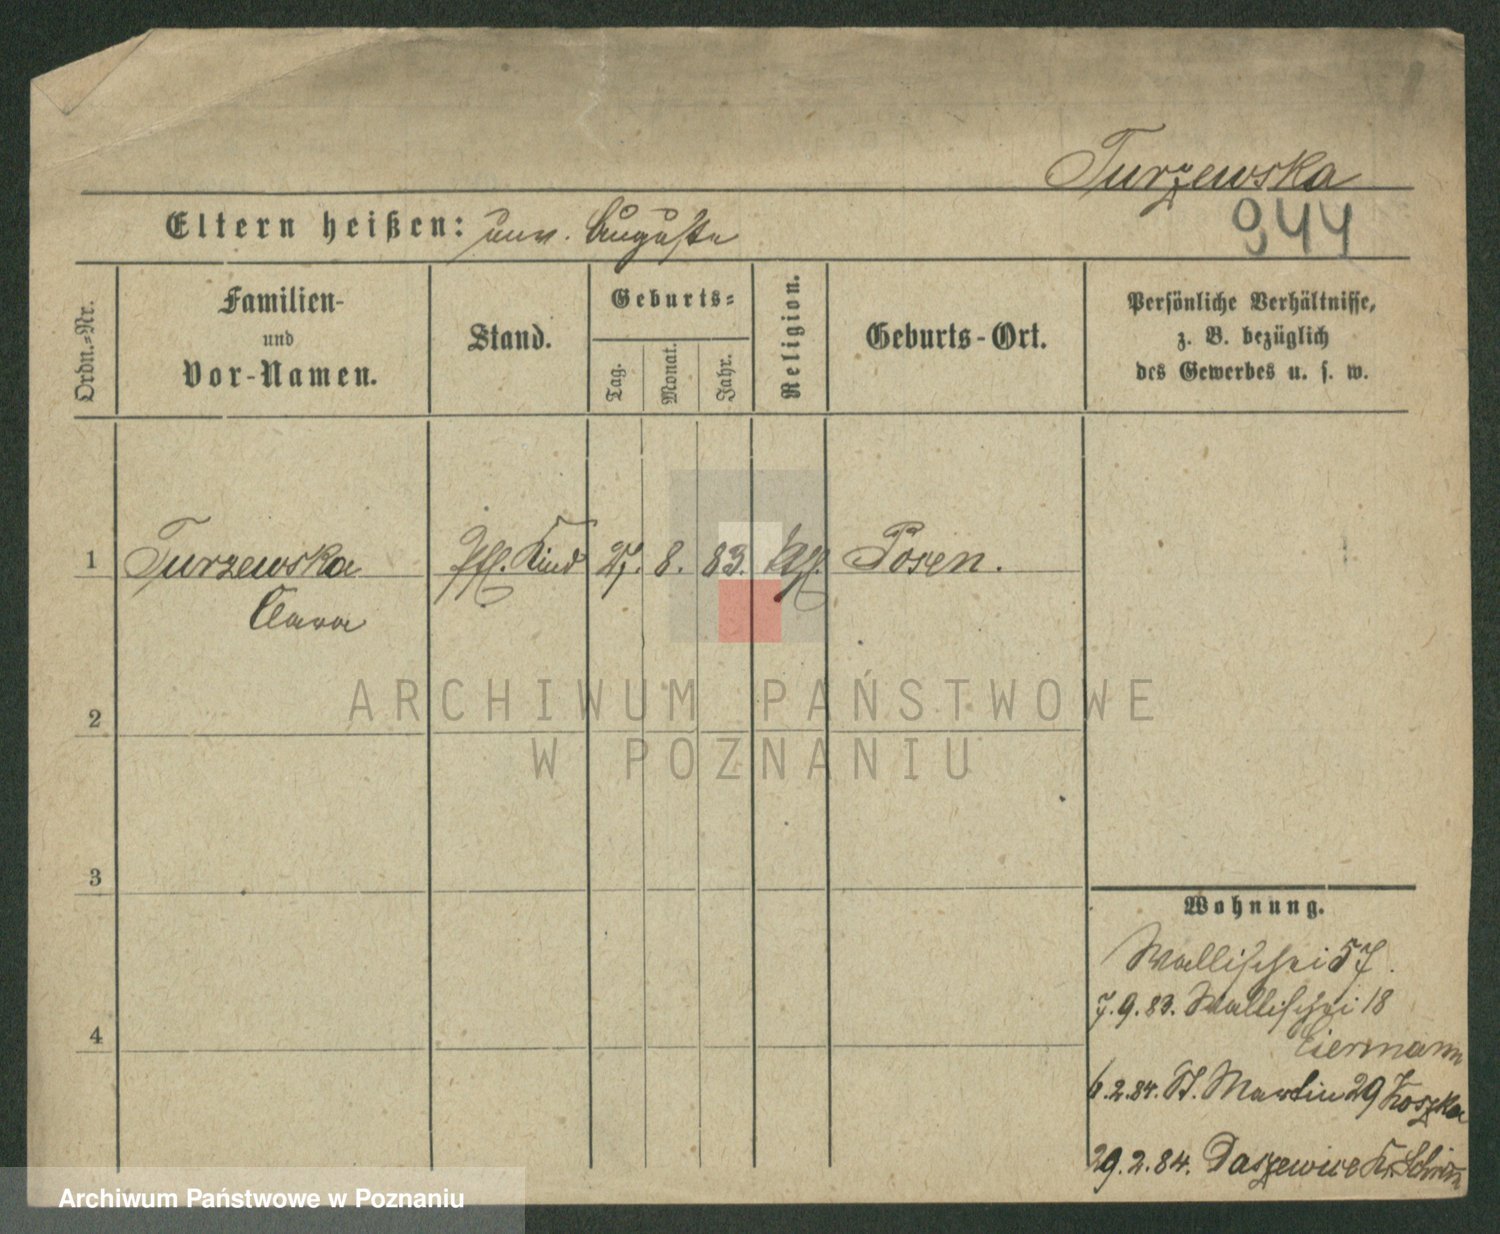 Turzewska
944
Eltern heißen: unv. Auguste
Ordn.-Nr.
Familien-
und
Vor-Namen.
Stand.
Geburts-
Tag.
Monat.
Jahr.
Religion.
Geburts-Ort.
Persönliche Verhältnisse,
z. B. bezüglich
des Gewerbes u. s. w.
1 Turzewska Pfl. Kind 8. 83. Posen.
Clara
2
3
4
ARCHIWUM PAŃSTWOWE
W POZNANIU
Wohnung.
Wallischei 57.
7.9.83. Wallischei 18
Eiermann
6.2.84. St. Martin 29 Koszka
29.2.84. Daszewice Kr. Schrimm
Archiwum Państwowe w Poznaniu